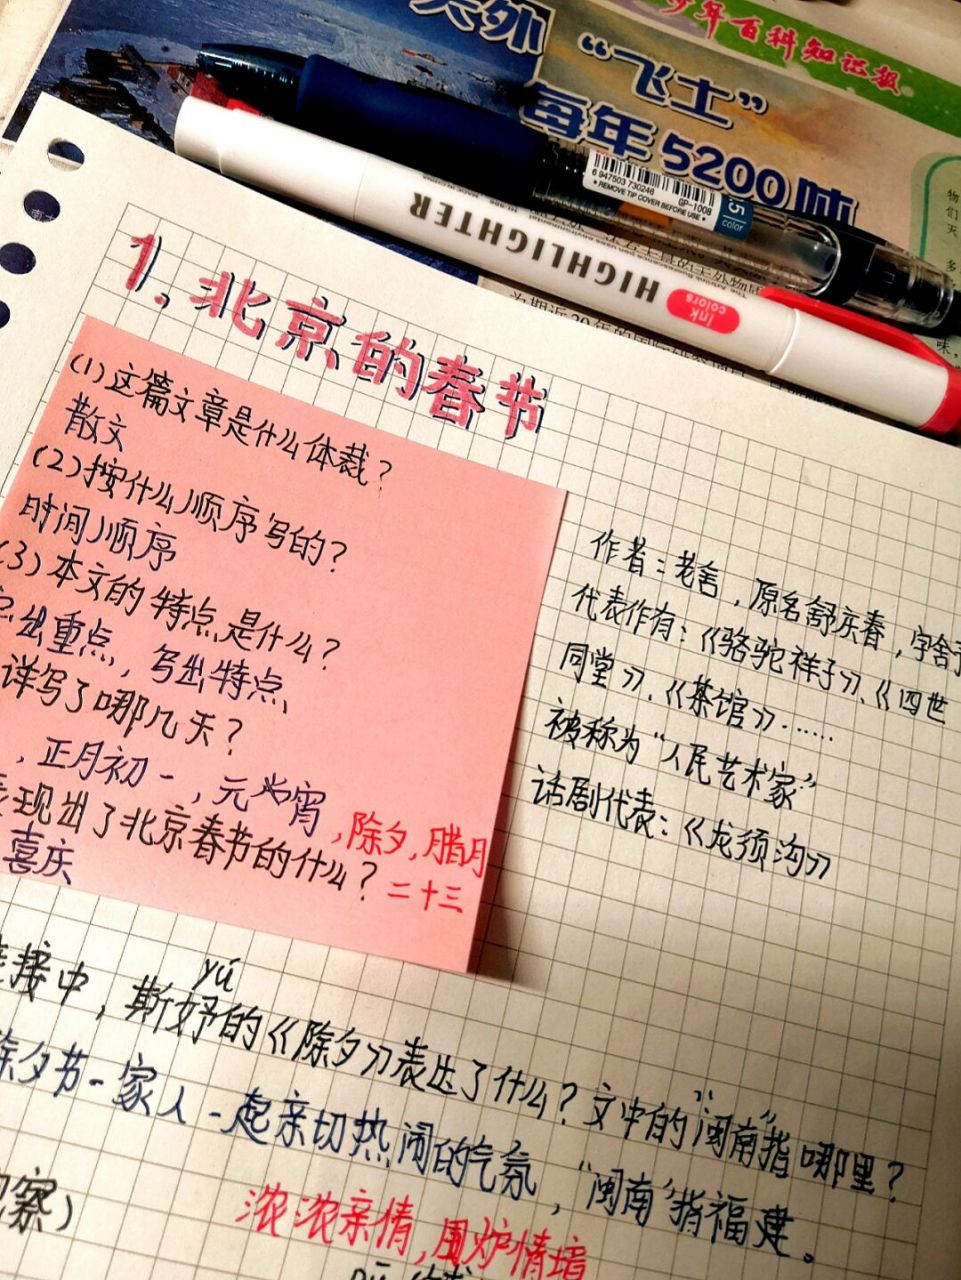 少年百科知识报
天外“飞土”
每年5200吨
6 947503 730246
GP-1008
• REMOVE TIP COVER BEFORE USE •
color
HIGHLIGHTER
Ink
colors
1.北京的春节
(1)这篇文章是什么体裁？
散文
(2)按什么顺序写的？
时间顺序
(3)本文的特点是什么？
出重点，写出特点
详写了哪几天？
，正月初一，元宵，除夕，腊月
二十三
现出了北京春节的什么？
喜庆
作者：老舍，原名舒庆春，字舍予
代表作有：《骆驼祥子》、《四世
同堂》、《茶馆》……
被称为“人民艺术家”
话剧代表：《龙须沟》
yú
接中，斯妤的《除夕》表达了什么？文中的“闽南”指哪里？
除夕节一家人一起亲切热闹的气氛，“闽南”指福建。
察)
浓浓亲情，围炉情境